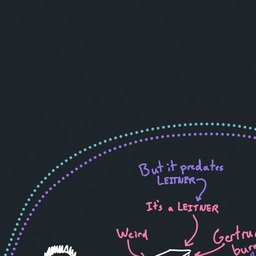 But it predates
LEITNER
It's a LEITNER
Weird